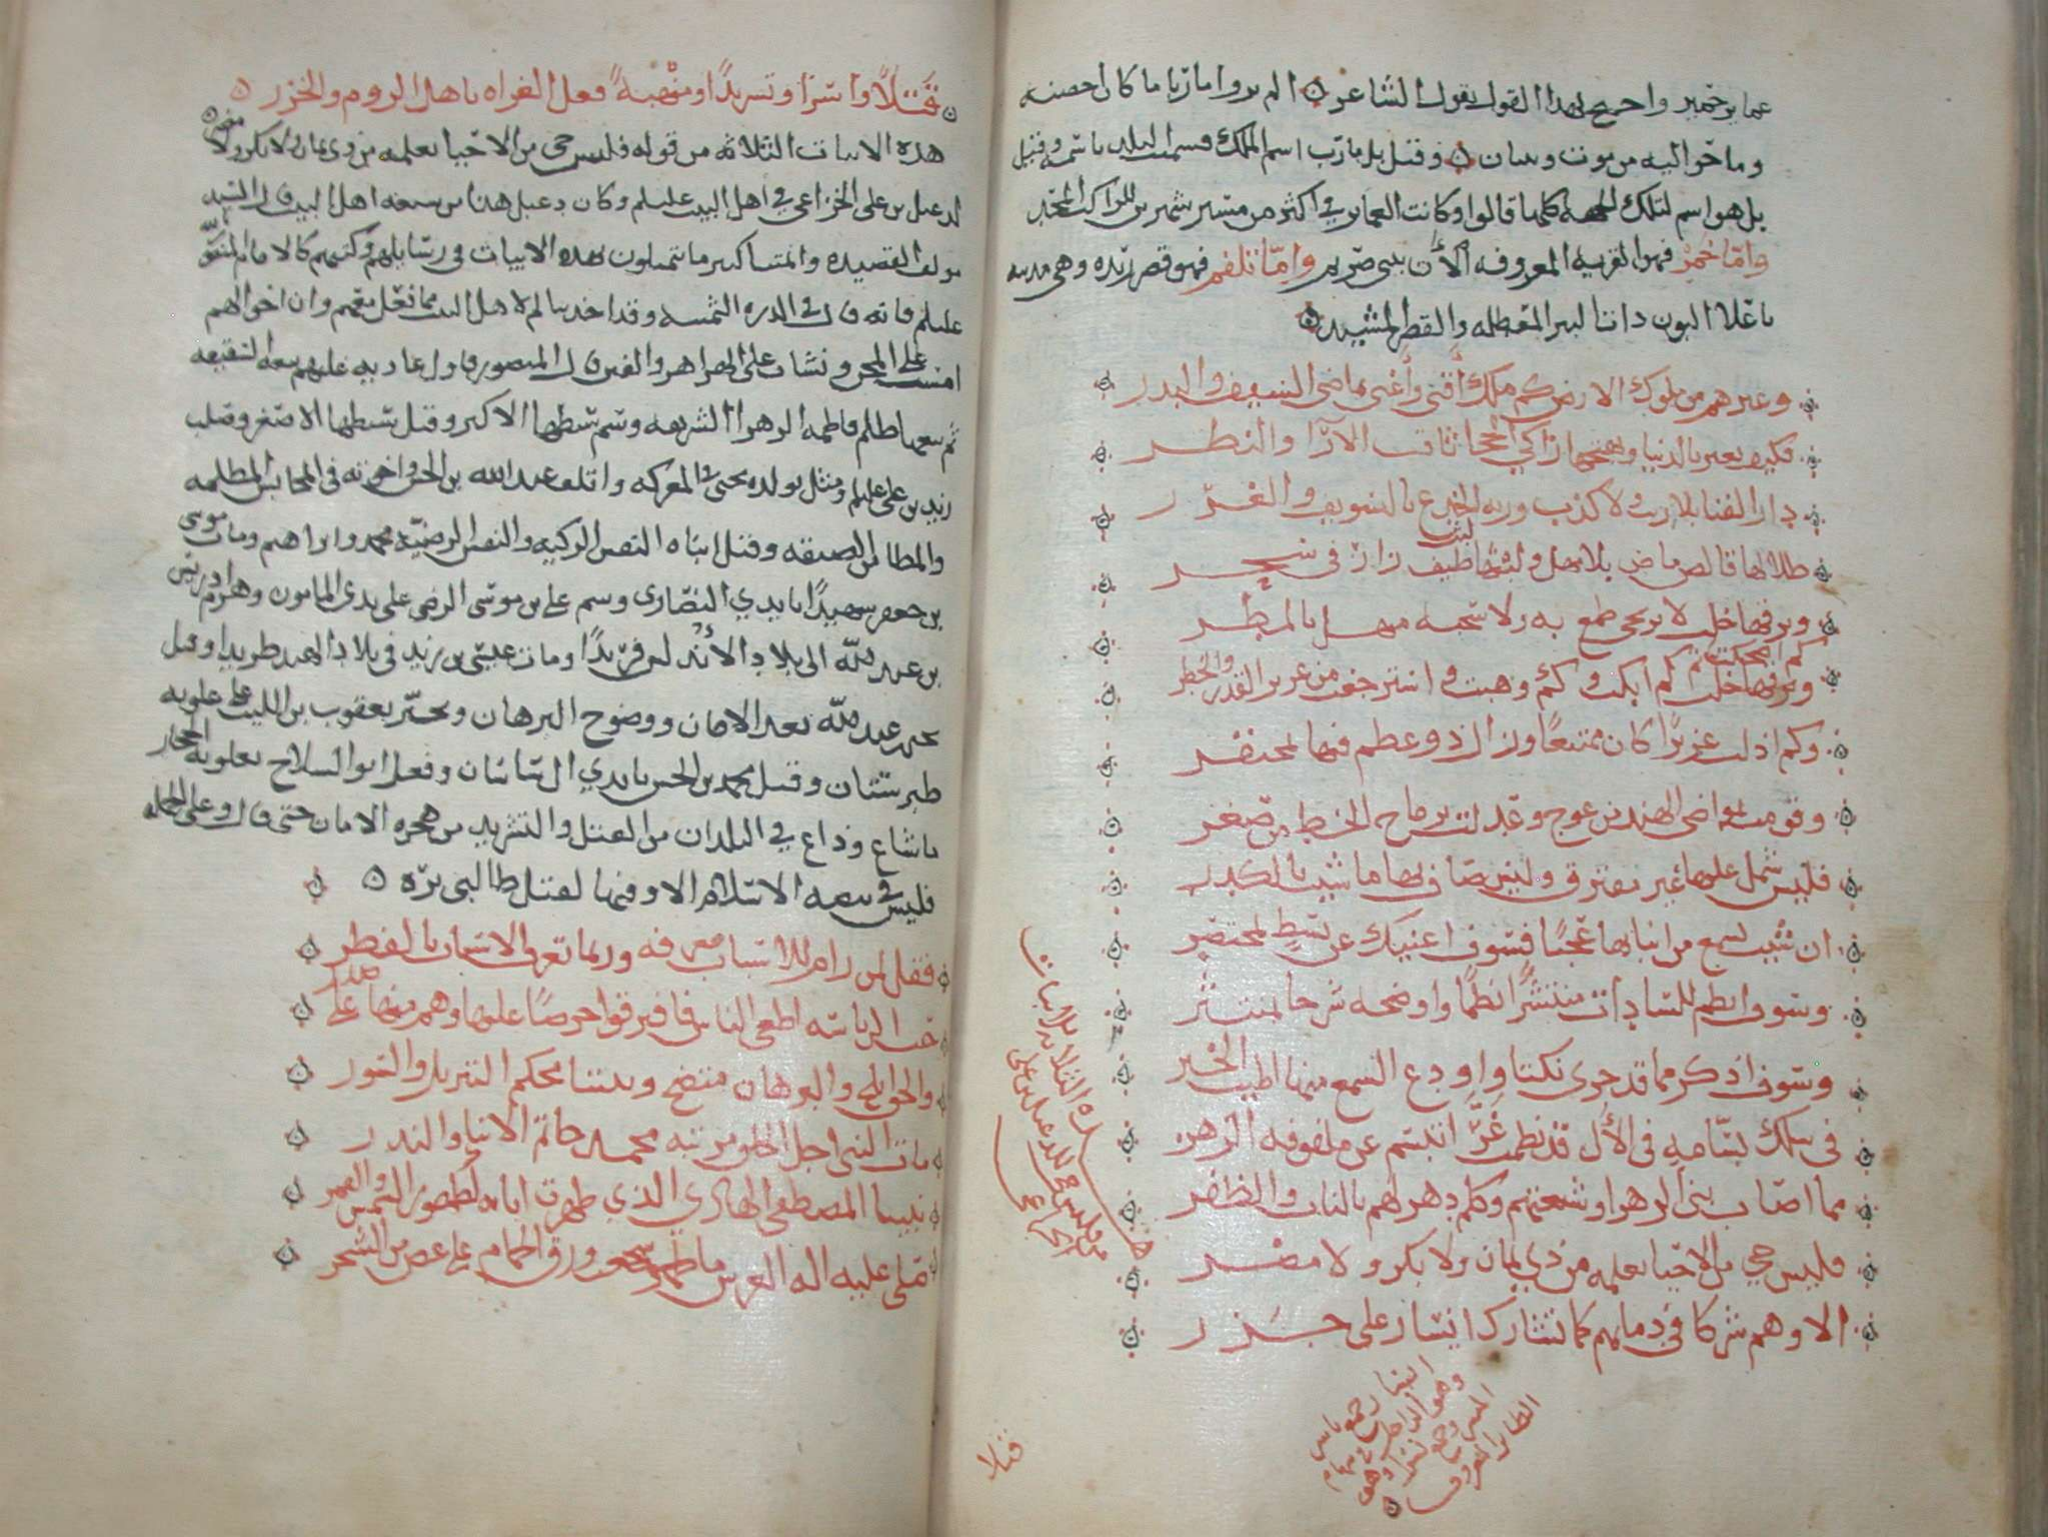 واحتج بهذا القول بقول الشاعر الم تروا ماربا ما كان احصنه
وما حواليه من بنيان وقيل بل مارب اسم الملك فسميت البلد باسمه وقيل
بل هو اسم لتلك الجهة كلها قالوا وكانت العماير في اكثر من مسير شهرين للراكب المجد
واما خمر فهو القرية المعروفة الآن ببني صريم واما تلفم فهو قصر ريده وهي مدينة
باعلا البون ذات البير المعطله والقصر المشيد
وغيرهم من ملوك الارض كم ملك أفنى وأغنى بماضي السيف والبدر
فكيف يعبر بالدنيا وبهجتها زاكي الحجا ثاقب الآرا والنظر
دار الفنا بلا ريب ولا كذب وربه الخدع بالتسويف والغرر
ظلالها قالص ماض بلا مهل ولبثها لبث طيف زار في سحر
وبرقها خلب لا يرتجى طمع به ولا سحبه منهل بالمطر
كم اضحكت ثم كم ابكت وكم وهبت واسترجعت من عزيز القدر والخطر
وكم اذلت عزيزا كان ممتنعا وزال ذو عظم فيها لمحتقر
وقومت بمواضي الهند من عوج وعدلت برماح الخط من صعر
فليس شمل عليها غير مفترق وليس صاف بها ما شيب بالكدر
ان شيت تسمع من انبايها عجبا فسوف اغنيك عن بسط لمختصر
وسوف انظم للسادات منتثرا نظما واوضحه شرحا لمنتثر
وسوف اذكر مما قد جرى نكتا واودع السمع منها اطيب الخبر
في سلك بسامه في الأل قد نظمت غرا تبسم عن ملفوفه الزهر
مما اصاب بني الزهرا وشيعتهم وكم دهر لهم بالناب والظفر
فليس حي من الاحيا نعلمه من ذي يمان ولا بكر ولا مضر
الا وهم شركا في دمايهم كما تشارك ايسار على جزر
هذه الثلاثه الابيات
من فليس حي لدعبل بن علي
الخزاعي
قتلا
قتلا واسرا وتشريدا ومنهبة فعل الغزاه باهل الروم والخزر
هذه الابيات الثلاثه من قوله فليس حي من الاحيا نعلمه من ذي يمان ولا بكر ولا مضر
لدعبل بن علي الخزاعي في اهل البيت عليهم وكان دعبل هذا من شيعه اهل البيت قال السيد
مولف القصيده كثير ما يتمثلون بهذه الابيات في رسايلهم وكتبهم كالامام المتوكل
عليلم فانه قال في الدره الثمينه وقد اخذ بثارهم لاهل البيت مما فعل معهم وان احوالهم
اسست على المحن ونشات على الهزاهز والفتن قال المنصور فاول عاديه عليهم يوم السقيفه
ثم تبعها ظلم فاطمه الزهرا الشريفه وسم سبطها الاكبر وقتل سبطها الاصغر وصلب
زيد بن علي عليلم ومثل بولده يحيى في المعركه واتلف عبد الله بن الحسن واخوته في المحابس المظلمه
والمطامر الضيقه وقتل ابناه النفس الزكيه والنفس الرضيه محمد وابراهيم ومات موسى
بن جعفر شهيدا بايدي النصارى وسم علي بن موسى الرضى على يدي المامون وهزم ادريس
بن عبد الله الى بلاد الأندلس فريدا ومات عيسى بن زيد في بلاد الهند طريدا وقتل
يحيى بن عبد الله بعد الامان ووضوح البرهان وتجبر يعقوب بن الليث على علويه
طبرستان وقتل محمد بن الحسن بايدي ال ساسان وفعل ابو السلاج بعلويه الحجاز
ما شاع وذاع في البلدان من القتل والتشريد من هجره الامان حتى قال وعلى الجمله
فليس في بيعه الاسلام الا وفيها لقتل طالبي تره
فقل لمن رام للاسباب معرفه وربما تعرف الاسباب بالفطر
حب الرياسه اطغى الناس فافترقوا حرصا عليها وهم منها على حذر
والحق ابلج والبرهان متضح وبيننا محكم التنزيل والسور
مات النبي اجل الخلق مرتبه محمد خاتم الانبيا والنذر
نبينا المصطفى الهادي الذي ظهرت اياته كظهور الشمس والقمر
صلى عليه اله العرش ما طلعت ورق الحمام على غصن من الشجر